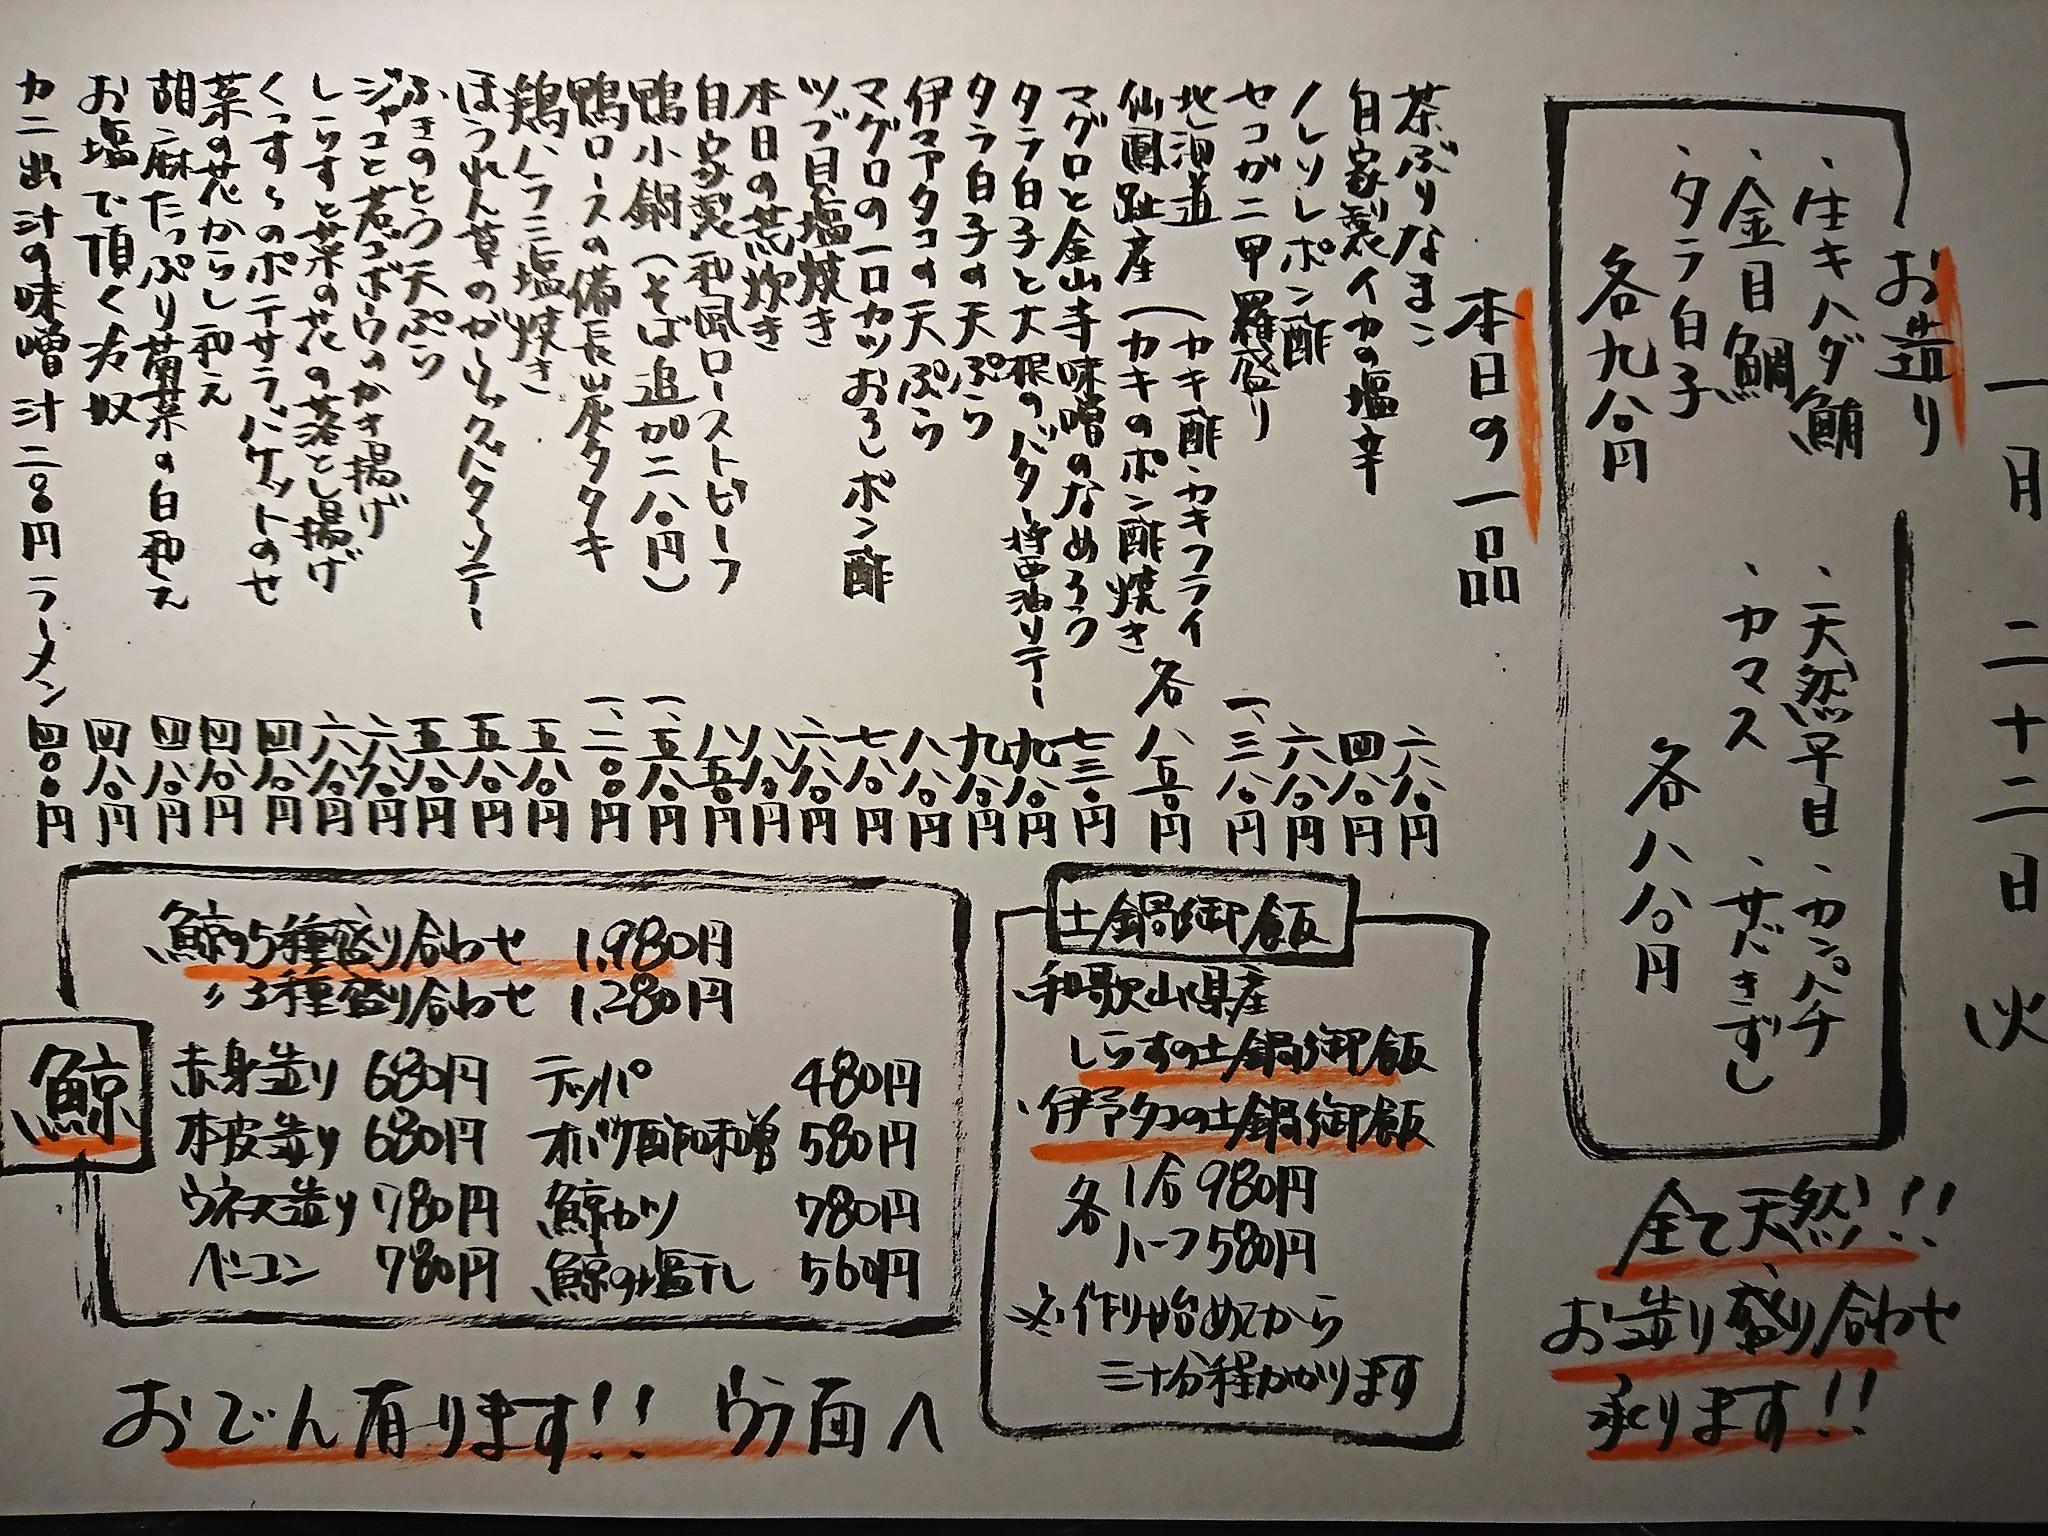 一月二十二日火
お造り
・生キハダ鮪
・金目鯛
・タラ白子
各九八〇円
・天然平目・カンパチ
・カマス・サバきずし
各八八〇円
全て天然!!
お造り盛り合わせ
承ります!!
本日の一品
茶ぶりなまこ 六八〇円
自家製イカの塩辛 四八〇円
ノレソレポン酢 六八〇円
セコガニ甲羅盛り 一、三八〇円
北海道(カキ酢・カキフライ
仙鳳趾産(カキのポン酢焼き 各八五〇円
マグロと金山寺味噌のなめろう 七三〇円
タラ白子と大根のバター醤油ソテー 九八〇円
タラ白子の天ぷら 九八〇円
伊予タコの天ぷら 八八〇円
マグロの一口カツおろしポン酢 七八〇円
ツブ貝塩焼き 六八〇円
本日の荒炊き 八八〇円
自家製和風ローストビーフ 八五〇円
鴨小鍋(そば追加二八〇円) 一、五八〇円
鴨ロースの備長炭タタキ 一、二〇〇円
鶏ハラミ塩焼き 五八〇円
ほうれん草のガーリックバターソテー 五八〇円
ふきのとう天ぷら 五八〇円
ジャコと若ゴボウのかき揚げ 六八〇円
しらすと菜の花の落とし揚げ 六八〇円
くっすらのポテサラバケットのせ 四八〇円
菜の花からし和え 四八〇円
胡麻たっぷり菊菜の白和え 四八〇円
お塩で頂く冷奴 四八〇円
カニ出汁の味噌汁二〇〇円ラーメン四〇〇円
土鍋御飯
・和歌山県産
しらすの土鍋御飯
・伊予タコの土鍋御飯
各 1合980円
ハーフ580円
※作り始めてから
三十分程かかります
鯨
鯨の5種盛り合わせ 1,980円
〃3種盛り合わせ 1,280円
赤身造り 680円 テッパ 480円
本皮造り 680円 オバケ酢味噌 580円
ウネス造り 780円 鯨カツ 780円
ベーコン 780円 鯨の塩干し 560円
おでん有ります!! ウラ面へ